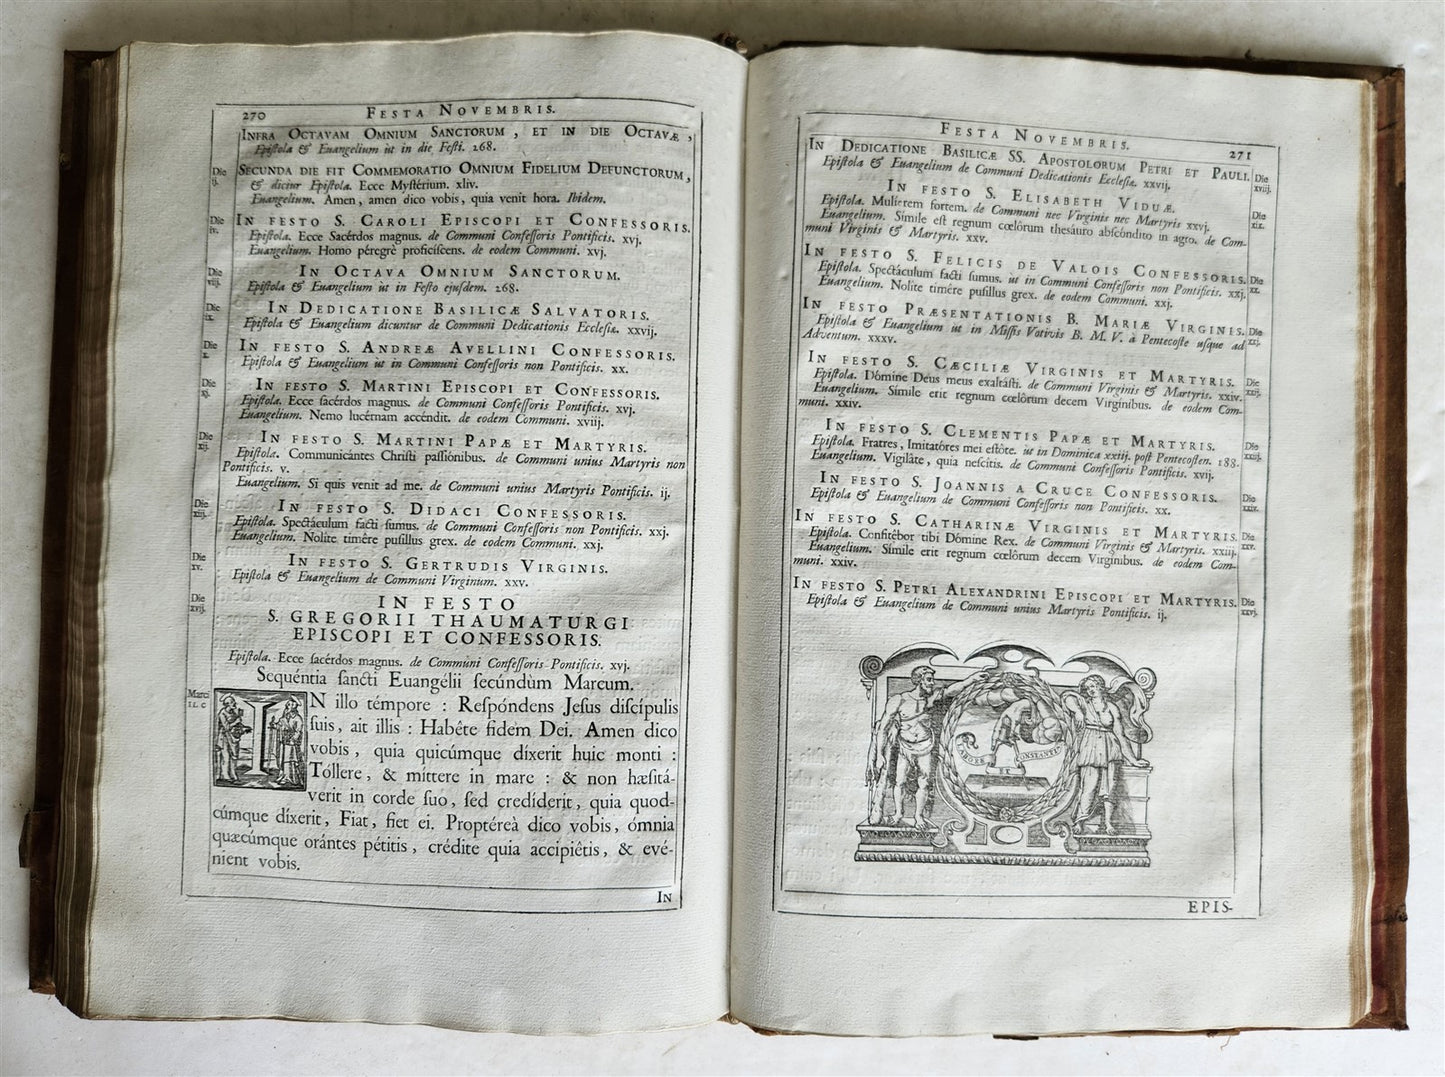 270 FESTA NOVEMBRIS.
INFRA OCTAVAM OMNIUM SANCTORUM, ET IN DIE OCTAVÆ,
Epistola & Euangelium ut in die Festi. 268.
Die ij.
SECUNDA DIE FIT COMMEMORATIO OMNIUM FIDELIUM DEFUNCTORUM,
& dicitur Epistola. Ecce Mystérium. xliv.
Euangelium. Amen, amen dico vobis, quia venit hora. Ibidem.
Die iv.
IN FESTO S. CAROLI EPISCOPI ET CONFESSORIS.
Epistola. Ecce Sacérdos magnus. de Communi Confessoris Pontificis. xvj.
Euangelium. Homo péregrè proficiscens. de eodem Communi. xvj.
Die viij.
IN OCTAVA OMNIUM SANCTORUM.
Epistola & Euangelium ut in Festo ejusdem. 268.
Die ix.
IN DEDICATIONE BASILICÆ SALVATORIS.
Epistola & Euangelium dicuntur de Communi Dedicationis Ecclesiæ. xxvij.
Die x.
IN FESTO S. ANDREÆ AVELLINI CONFESSORIS.
Epistola & Euangelium ut in Communi Confessoris non Pontificis. xx.
Die xj.
IN FESTO S. MARTINI EPISCOPI ET CONFESSORIS.
Epistola. Ecce sacérdos magnus. de Communi Confessoris Pontificis. xvj.
Euangelium. Nemo lucérnam accéndit. de eodem Communi. xviij.
Die xij.
IN FESTO S. MARTINI PAPÆ ET MARTYRIS.
Epistola. Communicántes Christi passiónibus. de Communi unius Martyris non
Pontificis. v.
Euangelium. Si quis venit ad me. de Communi unius Martyris Pontificis. ij.
Die xiij.
IN FESTO S. DIDACI CONFESSORIS.
Epistola. Spectáculum facti sumus. de Communi Confessoris non Pontificis. xxj.
Euangelium. Nolite timêre pusillus grex. de eodem Communi. xxj.
Die xv.
IN FESTO S. GERTRUDIS VIRGINIS.
Epistola & Euangelium de Communi Virginum. xxv.
Die xvij.
IN FESTO
S. GREGORII THAUMATURGI
EPISCOPI ET CONFESSORIS.
Epistola. Ecce sacérdos magnus. de Communi Confessoris Pontificis. xvj.
Sequéntia sancti Euangélii secúndùm Marcum.
Marci 11. c
IN illo témpore : Respóndens Jesus discípulis
suis, ait illis : Habête fidem Dei. Amen dico
vobis, quia quicúmque díxerit huic monti :
Tóllere, & míttere in mare : & non hæsitá-
verit in corde suo, sed credíderit, quia quod-
cúmque díxerit, Fiat, fiet ei. Proptéreà dico vobis, ómnia
quæcúmque orántes pétitis, crédite quia accipiêtis, & evé-
nient vobis.
IN
FESTA NOVEMBRIS. 271
IN DEDICATIONE BASILICÆ SS. APOSTOLORUM PETRI ET PAULI.
Die xviij.
Epistola & Euangelium de Communi Dedicationis Ecclesiæ. xxvij.
IN FESTO S. ELISABETH VIDUÆ.
Die xix.
Epistola. Mulíerem fortem. de Communi nec Virginis nec Martyris xxvj.
Euangelium. Simile est regnum cœlôrum thesáuro abscóndito in agro. de Com-
muni Virginis & Martyris. xxv.
IN FESTO S. FELICIS DE VALOIS CONFESSORIS.
Die xx.
Epistola. Spectáculum facti sumus. ut in Communi Confessoris non Pontificis. xxj.
Euangelium. Nolite timére pusillus grex. de eodem Communi. xxj.
IN FESTO PRÆSENTATIONIS B. MARIÆ VIRGINIS.
Die xxj.
Epistola & Euangelium ut in Missis Votivis B. M. V. à Pentecoste usque ad
Adventum. xxxv.
IN FESTO S. CÆCILIÆ VIRGINIS ET MARTYRIS.
Die xxij.
Epistola. Dómine Deus meus exaltásti. de Communi Virginis & Martyris. xxiv.
Euangelium. Símile erit regnum cœlôrum decem Virgínibus. de eodem Com-
muni. xxiv.
IN FESTO S. CLEMENTIS PAPÆ ET MARTYRIS.
Die xxiij.
Epistola. Fratres, Imitatóres mei estôte. ut in Dominica xxiij. post Pentecosten. 188.
Euangelium. Vigilâte, quia nescítis. de Communi Confessoris Pontificis. xvij.
IN FESTO S. JOANNIS A CRUCE CONFESSORIS.
Die xxiv.
Epistola & Euangelium de Communi Confessoris non Pontificis. xx.
IN FESTO S. CATHARINÆ VIRGINIS ET MARTYRIS.
Die xxv.
Epistola. Confitébor tibi Dómine Rex. de Communi Virginis & Martyris. xxiij.
Euangelium. Símile erit regnum cœlôrum decem Virgínibus. de eodem Com-
muni. xxiv.
IN FESTO S. PETRI ALEXANDRINI EPISCOPI ET MARTYRIS.
Die xxvj.
Epistola & Euangelium de Communi unius Martyris Pontificis. ij.
LABORE ET CONSTANTIA
EPIS-